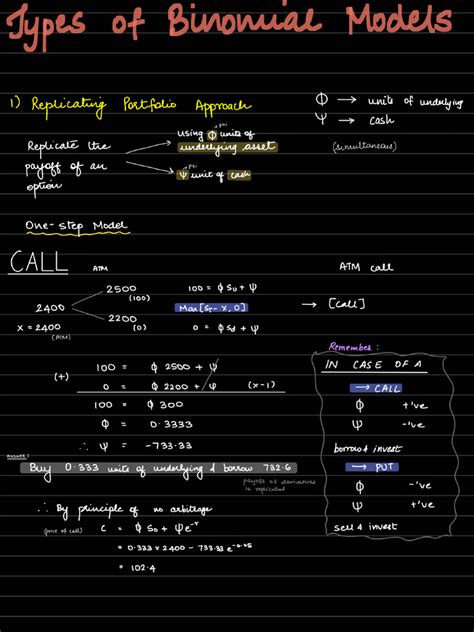 Types of Binomial Models
1) Replicating Portfolio Approach
Φ → units of underlying
Ψ → cash
(simultaneous)
Replicate the payoff of an option
phi
using Φ units of underlying asset
psi
Ψ unit of cash
One-step Model
CALL ATM
2500 100 = ϕ Su + ψ ATM call
(100)
2400 Max [ST - X, 0] → [Call]
X = 2400 2200 0 = ϕ Sd + ψ
(ATM) (0)
Remember:
IN CASE OF A
→ CALL
Φ +'ve
Ψ -'ve
borrow & invest
→ PUT
Φ -'ve
Ψ +'ve
sell & invest
100 = ϕ 2500 + ψ
(+)
0 = ϕ 2200 + ψ (x-1)
100 = ϕ 300
Φ = 0.3333
∴ Ψ = -733.33
Answer:
Buy 0.333 units of underlying & borrow 732.6
payoff of derivatives is replicated
∴ By principle of no arbitrage
(price of call) C = ϕ S0 + ψe^-r
= 0.333 x 2400 - 733.33 e^-0.05
= 102.4